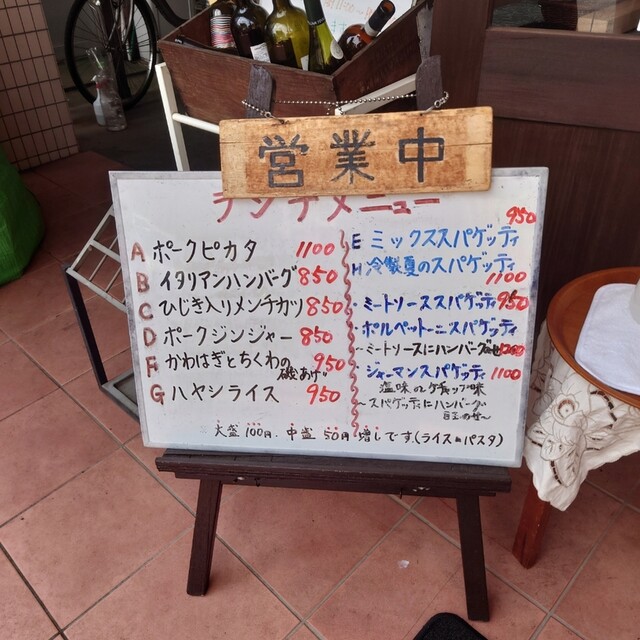 営業中
ランチメニュー
A ポークピカタ 1100
B イタリアンハンバーグ 850
C ひじき入りメンチカツ 850
D ポークジンジャー 850
F かわはぎとちくわの 950
磯あげ
G ハヤシライス 950
950
E ミックススパゲッティ
H 冷製夏のスパゲッティ
1100
・ミートソーススパゲッティ 950
・ポルペットーニスパゲッティ
・ミートソースにハンバーグ
・ジャーマンスパゲッティ 1100
塩味のケチャップ味
スパゲッティにハンバーグ
大盛100円、中盛50円増しです(ライス パスタ)